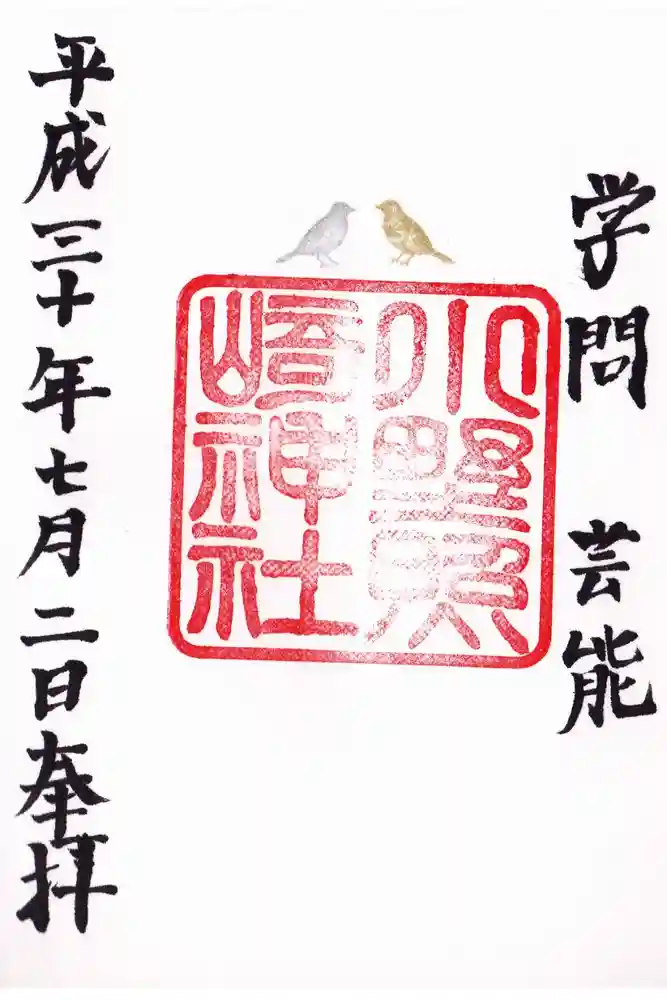 学問 芸能
小野照
崎神社
平成三十年七月二日奉拝